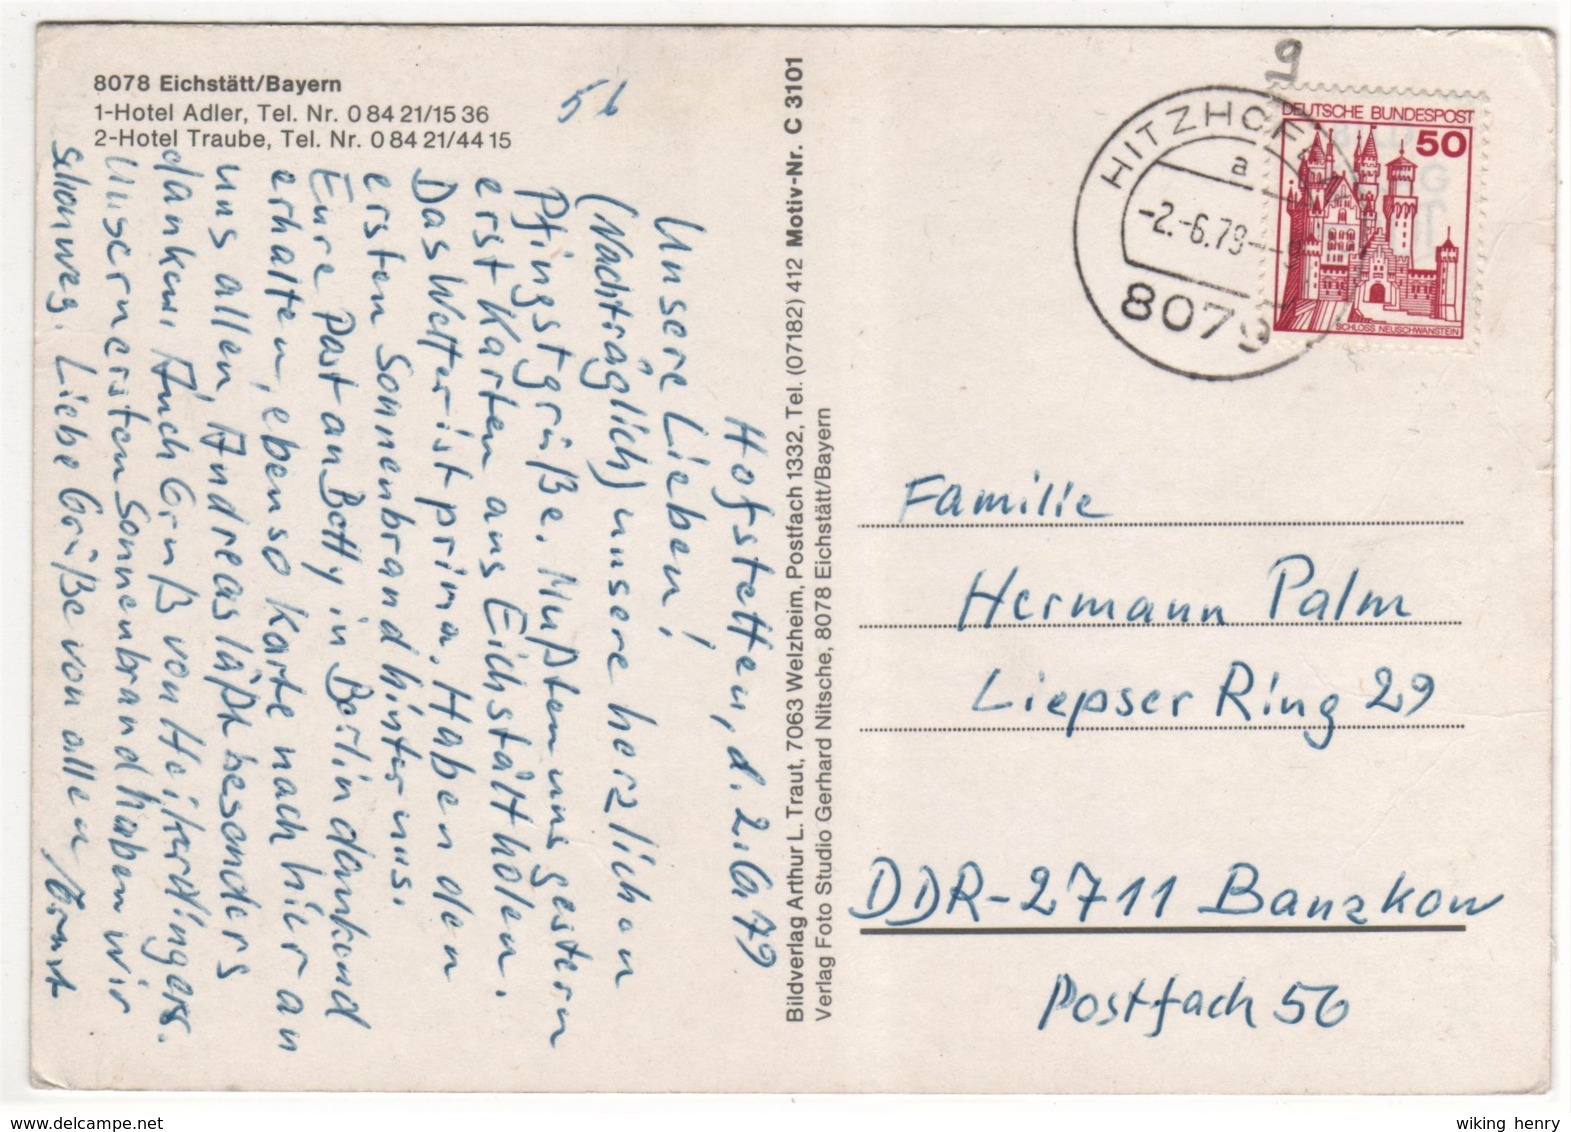 8078 Eichstätt/Bayern
1-Hotel Adler, Tel. Nr. 0 84 21/15 36
2-Hotel Traube, Tel. Nr. 0 84 21/44 15
56
Hofstetten, d. 2.6.79
Unsere Lieben!
(Nachträglich) unsere herzlichen
Pfingstgrüße. Mußten uns gestern
erst Karten aus Eichstätt holen.
Das Wetter ist prima. Haben den
ersten Sonnenbrand hinter uns.
Eure Post an Betty in Berlin dankend
erhalten, ebenso Karte nach hier an
uns allen, Andreas läßt besonders
danken. Auch Gruß von Heikerdingers.
Unsern ersten Sonnenbrand haben wir
schon weg. Liebe Grüße von allen
Bildverlag Arthur L. Traut, 7063 Welzheim, Postfach 1332, Tel. (07182) 412 Motiv-Nr. C 3101
Verlag Foto Studio Gerhard Nitsche, 8078 Eichstätt/Bayern
9
HITZHOFEN
a
-2.-6.79--9
8079
DEUTSCHE BUNDESPOST
50
SCHLOSS NEUSCHWANSTEIN
Familie
Hermann Palm
Liepser Ring 29
DDR-2711 Banzkow
Postfach 56
wiking henry